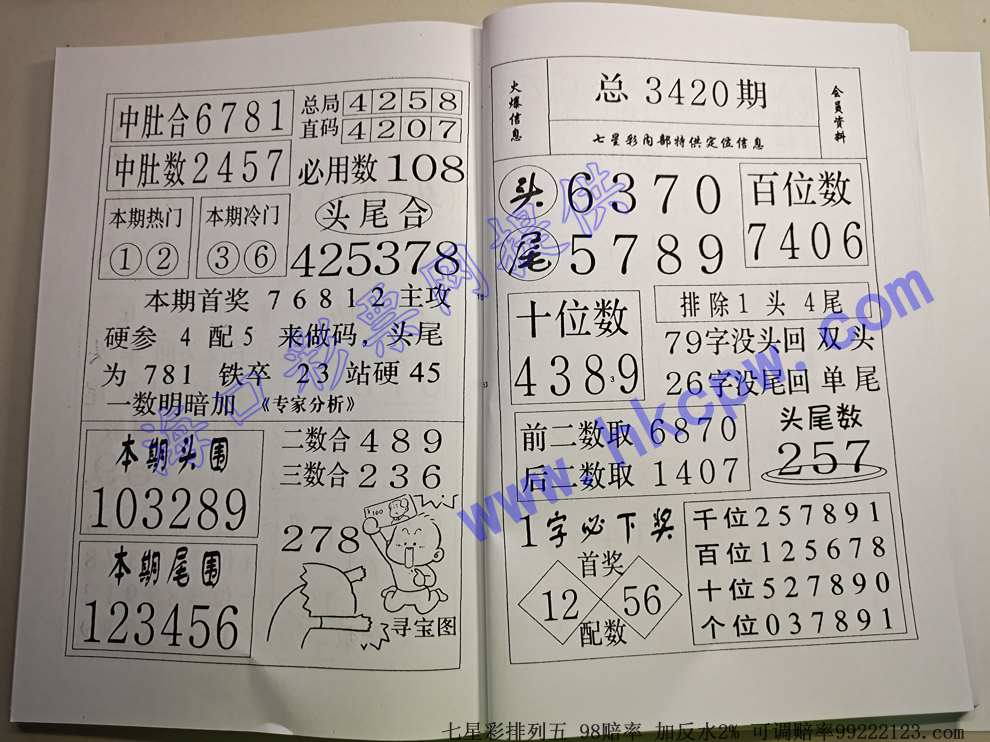 中肚合6781
总局 4258
直码 4207
中肚数2457
必用数108
本期热门
①②
本期冷门
③⑥
头尾合
425378
本期首奖 7 6 8 1 2 主攻
硬参 4 配 5 来做码，头尾
为 781 铁卒 23 站硬 45
一数明暗加 《专家分析》
本期头围
103289
二数合 489
三数合 236
278
本期尾围
123456
寻宝图
火爆信息
总 3420期
七星彩内部特供定位信息
会员资料
头 6370
尾 5789
百位数
7406
十位数
4389
排除1 头 4尾
79字没头回 双头
26字没尾回 单尾
前二数取 6870
后二数取 1407
头尾数
257
1字必下奖
首奖
12 56
配数
千位257891
百位125678
十位527890
个位037891
海口彩票网提供
www.hkcpw.com
七星彩排列五 98赔率 加反水2% 可调赔率99222123.com